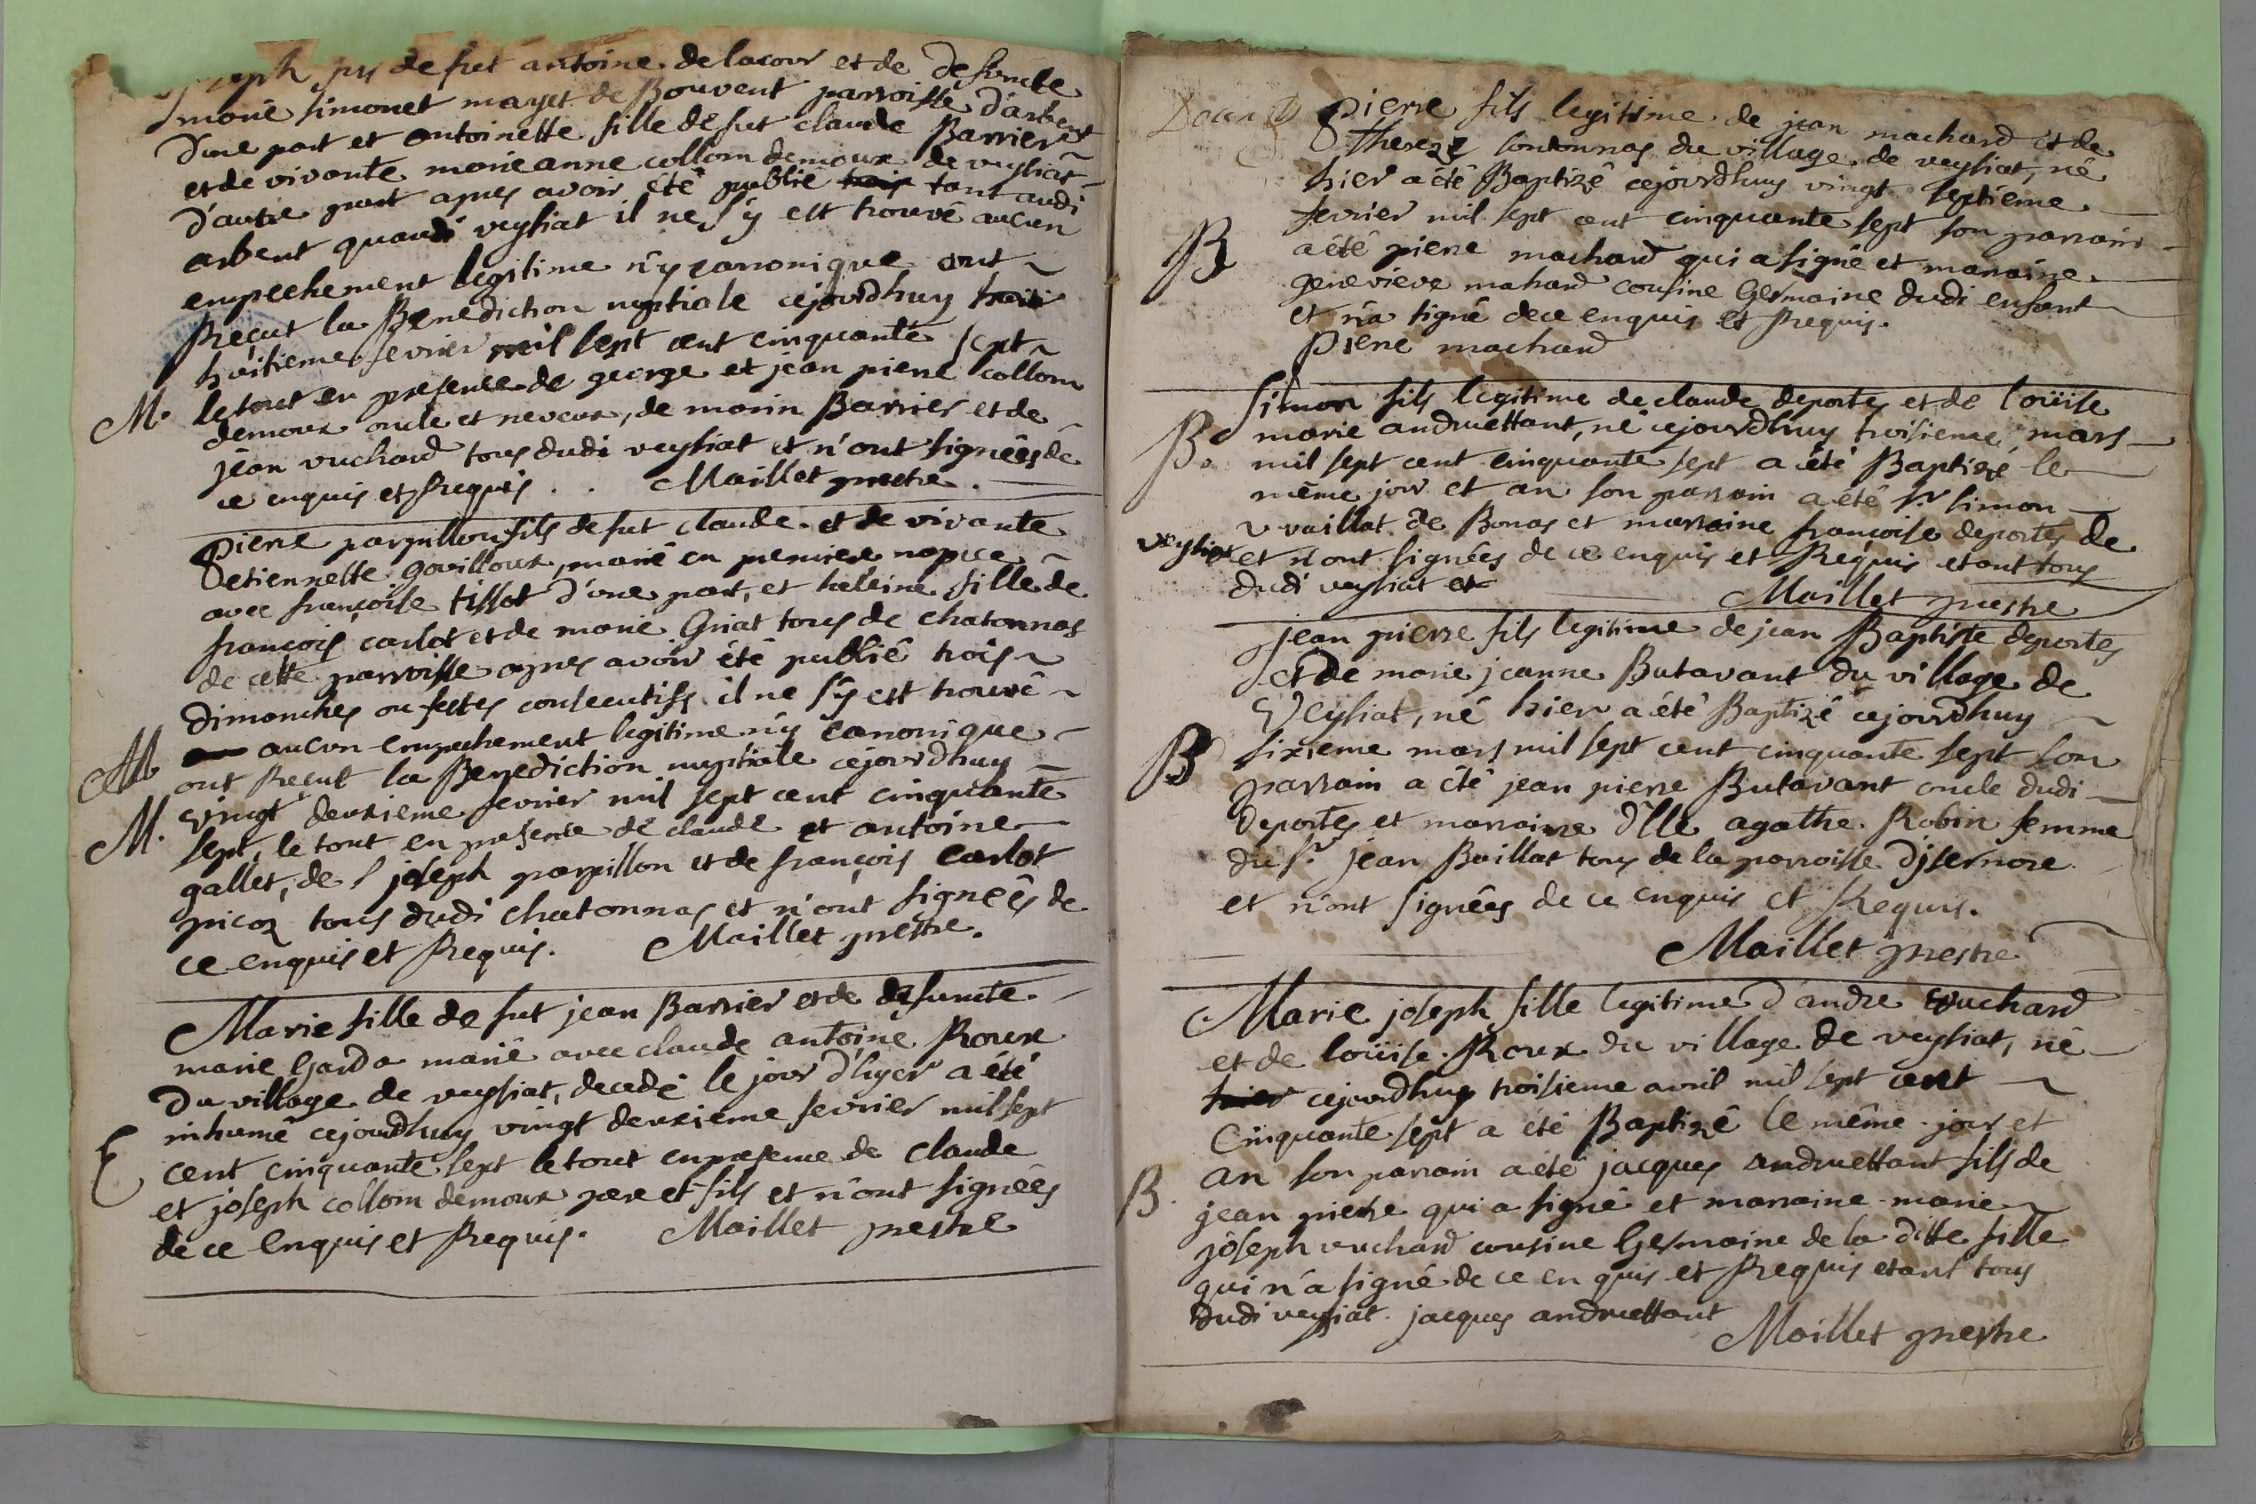 joseph fils de fut antoine delacour et de defuncte
marie simonet mayet de Bouvent parroisse d'arbent
d'une part et antoinette fille de fut claude Barrier
et de vivante marieanne collom demoux de veysiat
d'autre part apres avoir été publié tant audi
arbent quaudi veysiat il ne s'y est trouvé aucun
empechement legitime n'y canonique ont
Reçut la Benediction nuptiale cejourdhuy
huitieme fevrier mil sept cent cinquante sept
M. le tout en presence de george et jean pierre collom
demoux oncle et neveux, de marin Barrier et de
jean vuchard tous dudi veysiat et n'ont signéés de
ce enquis et Requis . . Maillet prestre.
Pierre parpillon fils de fut claude et de vivante
etiennette gouilloux, marié en premiere nopce
avec françoise tissot d'une part, et heleine fille de
françois carlot et de marie Griat tous de chatonnas
de cette parroisse apres avoir été publié trois
dimanches ou festes consecutifs il ne s'y est trouvé
M aucun empechement legitime n'y canonique
ont Recut la Benediction nuptiale cejourdhuy
vingt deuxieme fevrier mil sept cent cinquante
M. sept, le tout en presence de claude et antoine
gallet, de joseph parpillon et de françois carlot
picoz tous dudi chatonnas et n'ont signéés de
ce enquis et Requis. Maillet prestre.
Marie fille de fut jean Barrier et de defuncte
marie Garda marié avec claude antoine Roux
du village de veysiat, decedé le jour d'hyer a été
inhumé cejourdhuy vingt deuxieme fevrier mil sept
E cent cinquante sept le tout en presence de claude
et joseph collom demoux pere et fils et n'ont signéés
de ce enquis et Requis. Maillet prestre
Pierre fils legitime de jean machard et de
Therese sondonnas du village de veysiat, né
hier a été Baptizé cejourdhuy vingt septieme
fevrier mil sept cent cinquante sept son parrain
B a été pierre machard qui a signé et marraine
genevieve mahard cousine Germaine dudi enfant
et n'a signé de ce enquis et Requis.
Piere machard
Simon fils legitime de claude deportes et de Loüise
B. marie andruettant, né cejourdhuy troisieme mars
mil sept cent cinquante sept a été Baptizé le
même jour et an son parrain a été sr. simon
vuaillat de Bonas et marraine françoise deportes de
veysiat et n'ont signéés de ce enquis et Requis etant tous
dudi veysiat et
Maillet prestre
jean pierre fils legitime de jean Baptiste deportes
et de marie jeanne Butavant du village de
Veysiat, né hier a été Baptizé cejourdhuy
B sixieme mars mil sept cent cinquante sept son
parrain a été jean pierre Butavant oncle dudi
deportes et marraine d'lle agathe Robin femme
du sr. jean Baillat tous de la parroisse d'jsernore
et n'ont signéés de ce enquis et Requis.
Maillet prestre
Marie joseph fille legitime d'andre vuchard
et de Loüise Roux du village de veysiat, né
hier cejourdhuy troisieme avril mil sept cent
Cinquante sept a été Baptizé le même jour et
an son parrain a été jacques andruettant fils de
B. jean pierre qui a signé et marraine marie
joseph vuchard cousine Germaine de la ditte fille
qui n'a signé de ce enquis et Requis etant tous
dudi veysiat. jacques andruettant
Maillet prestre